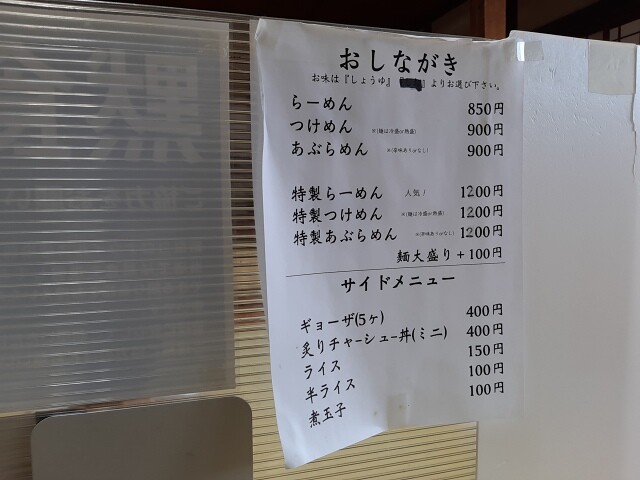 おしながき
お味は『しょうゆ』『』よりお選び下さい。
らーめん 850円
つけめん ※(麺は冷盛or熱盛) 900円
あぶらめん ※(辛味ありorなし) 900円
特製らーめん 人気! 1200円
特製つけめん ※(麺は冷盛or熱盛) 1200円
特製あぶらめん ※(辛味ありorなし) 1200円
麺大盛り+100円
サイドメニュー
ギョーザ(5ヶ) 400円
炙りチャーシュー丼(ミニ) 400円
ライス 150円
半ライス 100円
煮玉子 100円